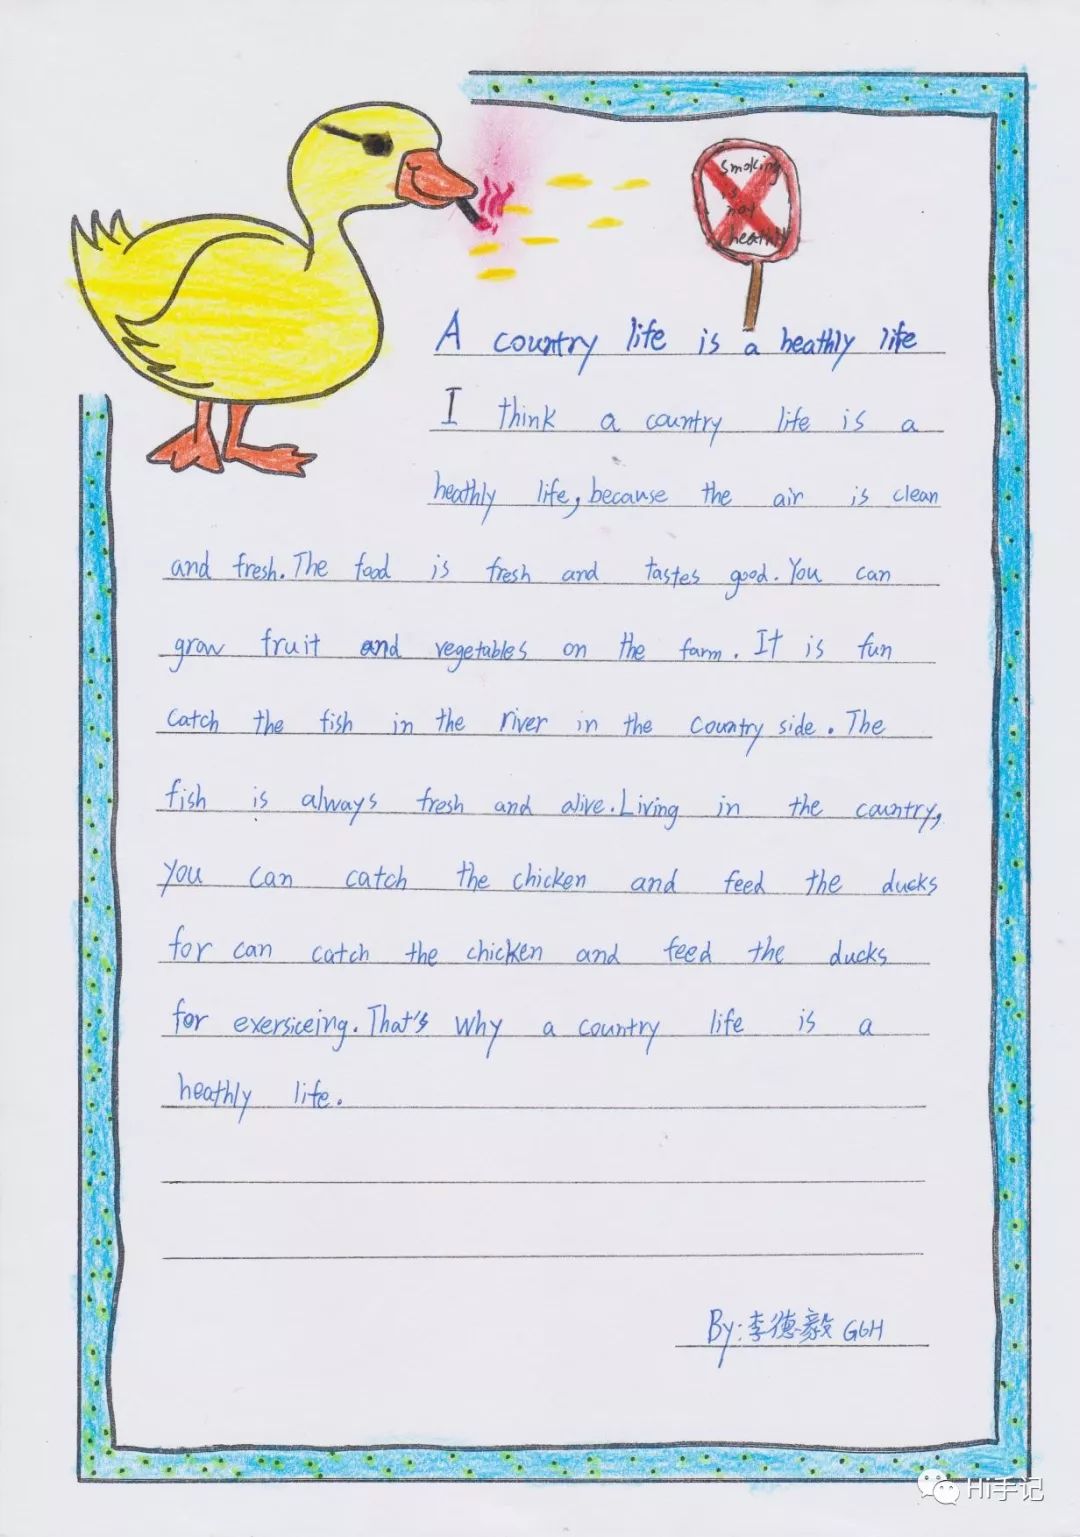 smoking
is
not
heathly
A country life is a heathly life
I think a country life is a
heathly life, because the air is clean
and fresh. The food is fresh and tastes good. You can
grow fruit and vegetables on the farm. It is fun
catch the fish in the river in the country side. The
fish is always fresh and alive. Living in the country,
you can catch the chicken and feed the ducks
for can catch the chicken and feed the ducks
for exersiceing. That's why a country life is a
heathly life.
By: 李德毅 G6H
Hi手记